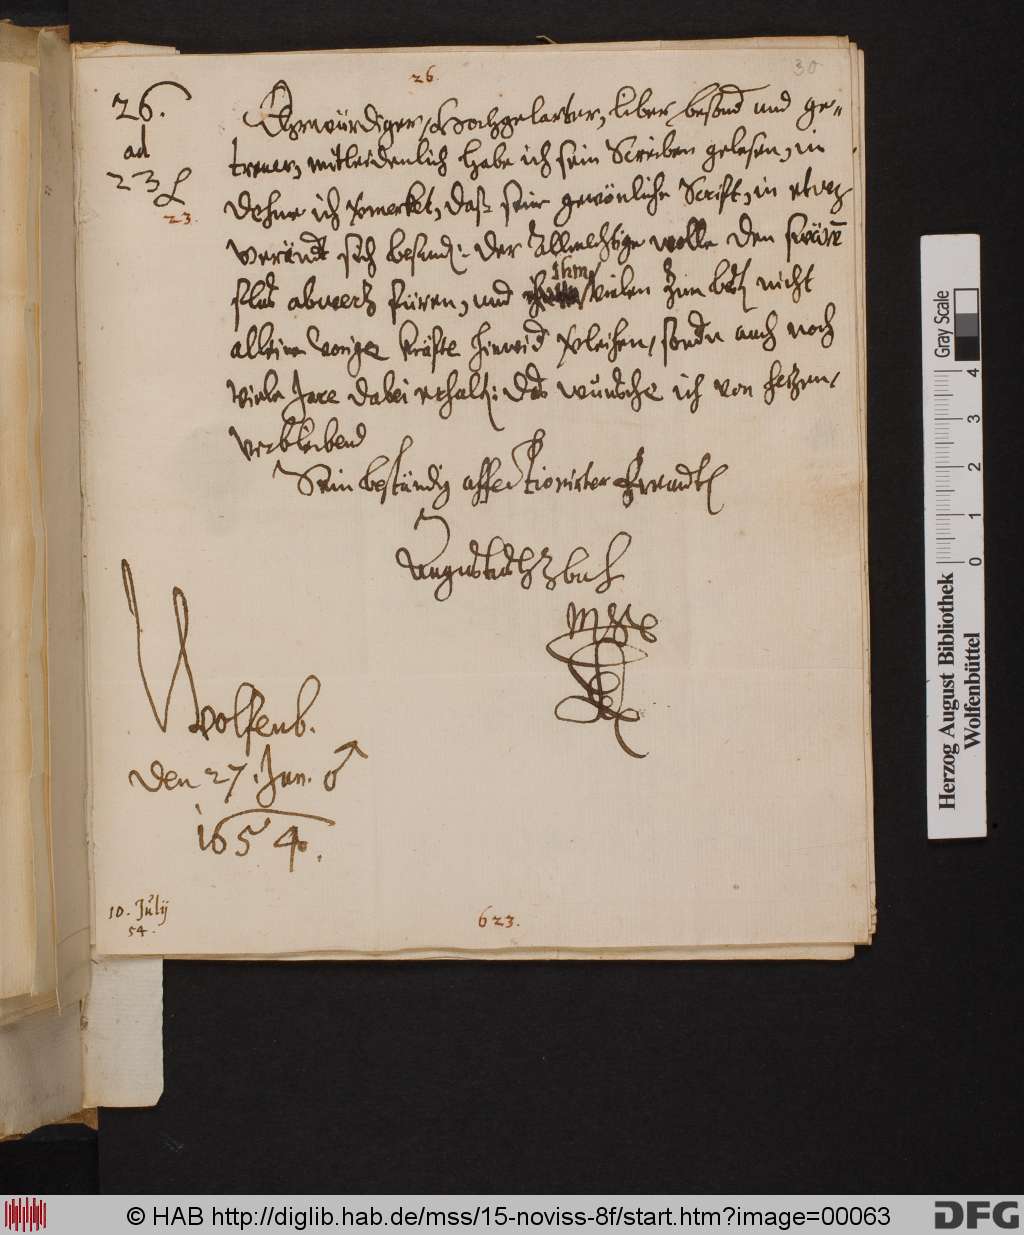 26.
30
26.
ad
23
23.
Ehrwürdiger, Hochgelarter, lieber besond und ge-
trewer, mitleidenlich habe ich sein Screiben gelesen, in
dehme ich vermerket, daß seine gewönliche Scrift, in etwz
verändt sich befind: der Allmechtige wolle den
flus abwertz füren, und ihm vielen zum best nicht
alleine vorige kräfte hinwid verleihen, sondn auch noch
viele Jare dabei erhalt: das wünsche ich von hertzen,
verbleibend
Sein beständig affectionirter Freundt
Augustus HzBuL
Wolfenb.
den 27. Jan. ♂
1654.
10. Julij
54.
623.
Gray Scale
0 1 2 3 4
Herzog August Bibliothek
Wolfenbüttel
© HAB http://diglib.hab.de/mss/15-noviss-8f/start.htm?image=00063
DFG